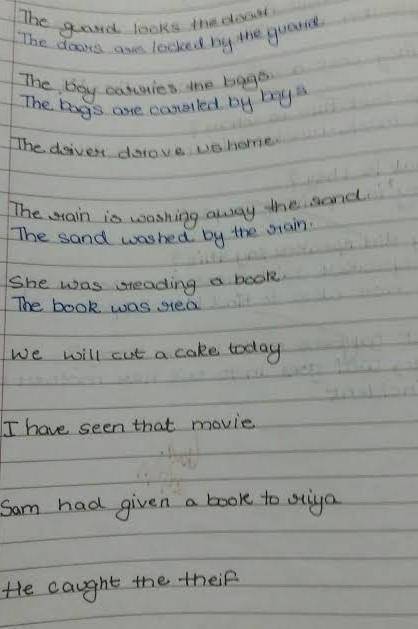 The guard locks the doors.
The doors are locked by the guard
The boy carries the bags.
The bags are carried by boys
The driver drove us home.
The rain is washing away the sand.
The sand washed by the rain.
She was reading a book.
The book was rea
We will cut a cake today
I have seen that movie
Sam had given a book to riya
He caught the theif